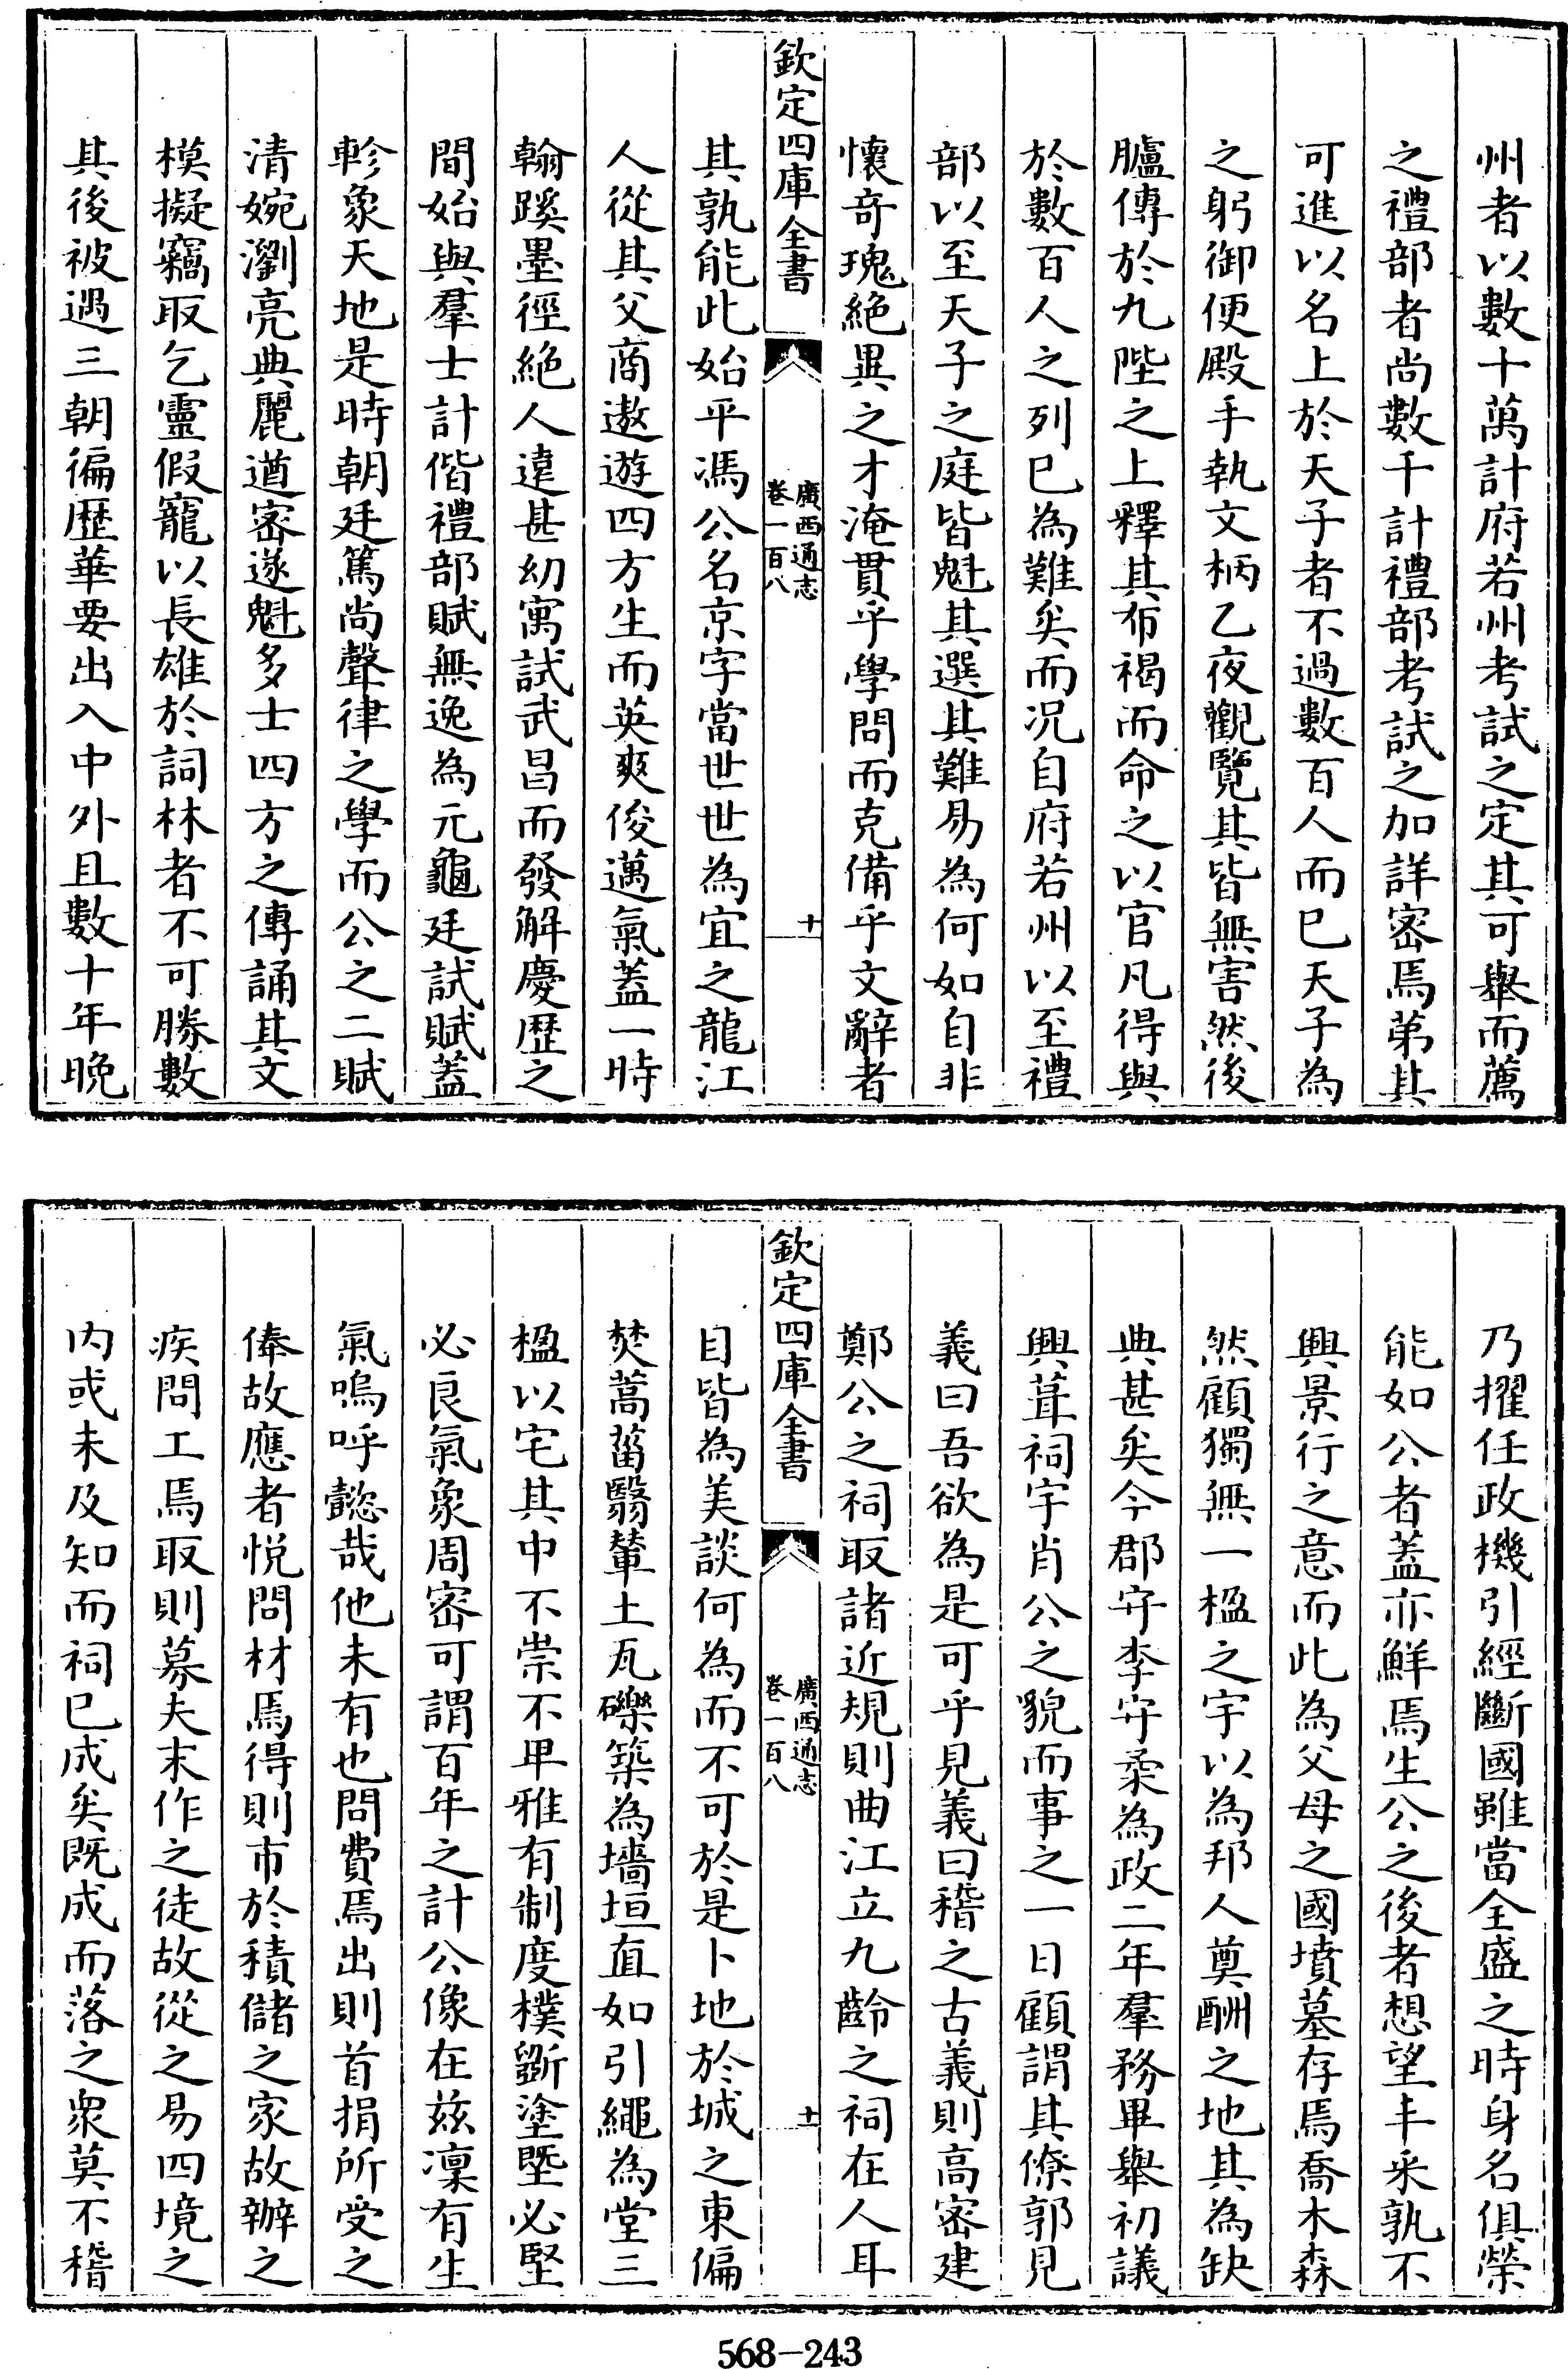 州者以數十萬計府若州考試之定其可舉而薦
之禮部者尚數千計禮部考試之加詳密焉第其
可進以名上於天子者不過數百人而已天子為
之躬御便殿手執文柄乙夜觀覽其皆無害然後
臚傳於九陛之上釋其布褐而命之以官凡得與
於數百人之列已為難矣而况自府若州以至禮
部以至天子之庭皆魁其選其難易為何如自非
懷奇瑰絕異之才淹貫乎學問而克備乎文辭者
欽定四庫全書
廣西通志
卷一百八
十
其孰能此始平馮公名京字當世世為宜之龍江
人從其父商遨遊四方生而英爽俊邁氣蓋一時
翰蹊墨徑絕人遠甚幼寓試武昌而發解慶歷之
間始與羣士計偕禮部賦無逸為元龜廷試賦蓋
軫象天地是時朝廷篤尚聲律之學而公之二賦
清婉瀏亮典麗遒密遂魁多士四方之傳誦其文
模擬竊取乞靈假寵以長雄於詞林者不可勝數
其後被遇三朝徧歷華要出入中外且數十年晚
乃擢任政機引經斷國雖當全盛之時身名俱榮
能如公者蓋亦鮮焉生公之後者想望丰采孰不
興景行之意而此為父母之國墳墓存焉喬木森
然顧獨無一楹之宇以為邦人奠酬之地其為缺
典甚矣今郡守李守柔為政二年羣務畢舉初議
興葺祠宇肖公之貌而事之一日顧謂其僚郭見
義曰吾欲為是可乎見義曰稽之古義則高密建
鄭公之祠取諸近規則曲江立九齡之祠在人耳
欽定四庫全書
廣西通志
卷一百八
十一
目皆為美談何為而不可於是卜地於城之東偏
焚蒿菑翳輦土瓦礫築為墻垣直如引繩為堂三
楹以宅其中不崇不卑雅有制度樸斵塗塈必堅
必良氣象周密可謂百年之計公像在兹凜有生
氣嗚呼懿哉他未有也問費焉出則首捐所受之
俸故應者悦問材焉得則市於積儲之家故辦之
疾問工焉取則募夫末作之徒故從之易四境之
内或未及知而祠已成矣既成而落之衆莫不稽
568-243